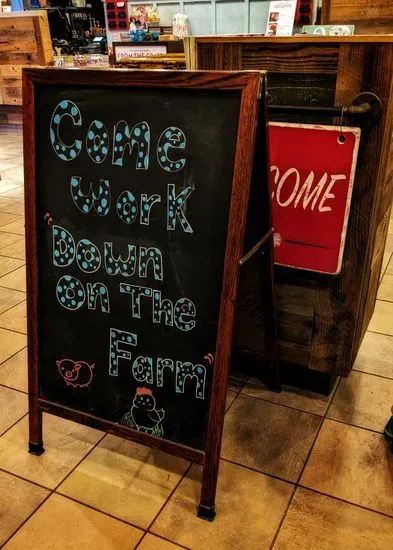 Come
Work
Down
On The
Farm
COME